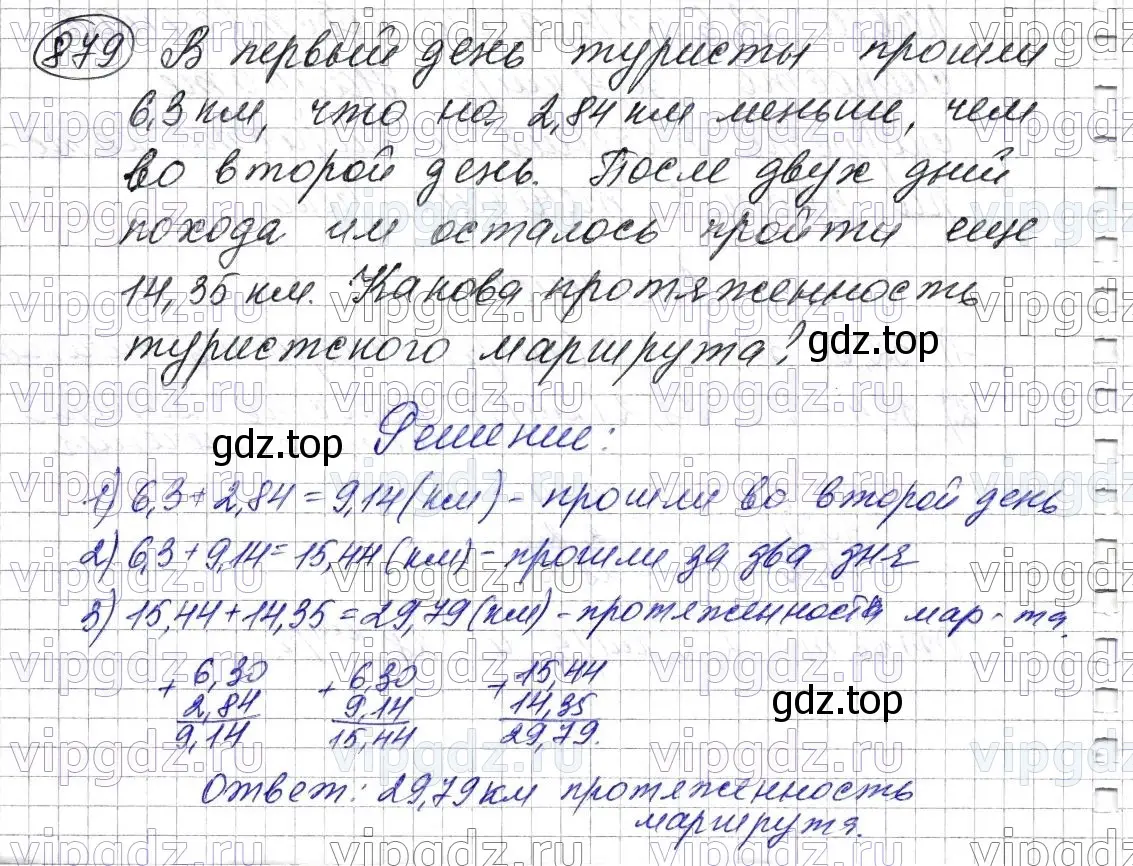 879 В первый день туристы прошли
6,3 км, что на 2,84 км меньше, чем
во второй день. После двух дний
похода им осталось пройти еще
14,35 км. Какова протяженность
туристского маршрута?
gdz.top
gdz.top
Решение:
1) 6,3 + 2,84 = 9,14 (км) - прошли во второй день
2) 6,3 + 9,14 = 15,44 (км) - прошли за два дня
3) 15,44 + 14,35 = 29,79 (км) - протяженность мар-та.
+ 6,30 + 6,30 + 15,44
2,84 9,14 14,35
9,14 15,44 29,79.
gdz.top
Ответ: 29,79 км протяженность
маршрута.
vipgdz.ru